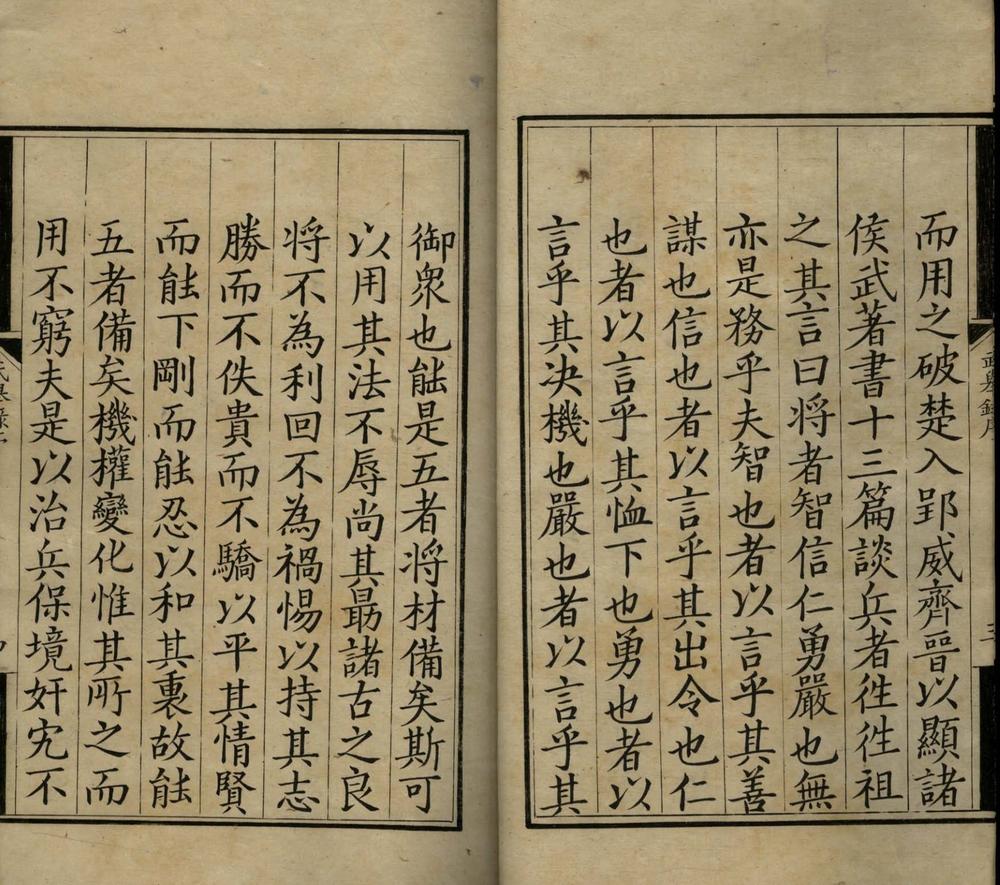 而用之破楚入郢威齊晉以顯諸
侯武著書十三篇談兵者徃徃祖
之其言曰將者智信仁勇嚴也無
亦是務乎夫智也者以言乎其善
謀也信也者以言乎其出令也仁
也者以言乎其恤下也勇也者以
言乎其决機也嚴也者以言乎其
御衆也能是五者將材備矣斯可
以用其法不辱尚其最諸古之良
將不為利回不為禍惕以持其志
勝而不佚貴而不驕以平其情賢
而能下剛而能忍以和其裏故能
五者備矣機權變化惟其所之而
用不窮夫是以治兵保境奸宄不